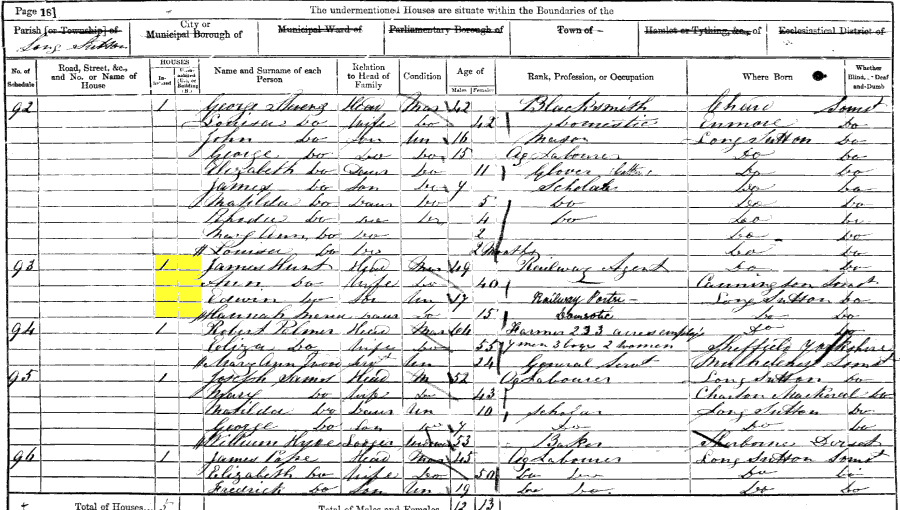 Page 18]
The undermentioned Houses are situate within the Boundaries of the
Parish [or Township] of
City or Municipal Borough of
Municipal Ward of
Parliamentary Borough of
Town of
Hamlet or Tything, &c., of
Ecclesiastical District of
Long Sutton
No. of Schedule
Road, Street, &c., and No. or Name of House
HOUSES
Name and Surname of each Person
Relation to Head of Family
Condition
Age of
Males
Females
Rank, Profession, or Occupation
Where Born
Whether Blind, or Deaf-and-Dumb
92 1 George Head Mar 42 Blacksmith Chard Somst
Louisa Do Wife Do 42 Domestic Do
John Do Son Un 16 Mason Long Sutton Do
George Do Do Do 15 Ag Labourer Do Do
Elizabeth Do Daur Do 11 Glover Do Do
James Do Son Do 7 Scholar Do Do
Matilda Do Daur Do 5 Do Do Do
Rhoda Do Do 4 Do Do Do
Mary Ann Do Do 2 Do Do
Louisa Do Do 2 Months Do Do
93 1 James Hunt Head Mar 49 Railway Agent Do Do
Ann Do Wife Do 40 Cannington Somst
Edwin Do Son Un 17 Railway Porter Long Sutton Do
Hannah Daur Do 15 Domestic Do Do
94 1 Robert Palmer Head Mar Farmer 233 acres employs
Eliza Do Wife Do 55 7 men 3 boys 2 women Sheffield Yorkshire
Mary Ann Servt Un 24 General Servt Muchelney Somst
95 1 Joseph Head M 52 Ag Labourer Long Sutton Do
Mary Do Wife Do 43 Charlton Mackrell Do
Matilda Do Daur Un 10 Scholar Long Sutton Do
George Do Son 7 Do Do Do
William Lodger 53 Baker Sherborne Dorset
96 1 James Head Mar 45 Ag Labourer Long Sutton Somst
Elizabeth Do Wife Do 50 Do Do Do
Fredrick Do Son Un 19 Do Do Do Do
Total of Houses... 5
Total of Males and Females.. 12 13